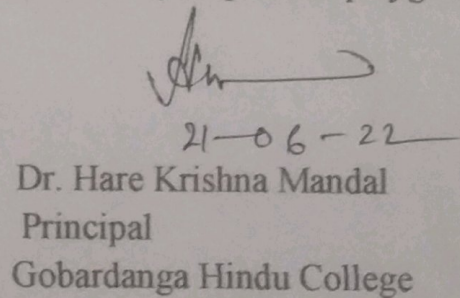 21-06-22
Dr. Hare Krishna Mandal
Principal
Gobardanga Hindu College